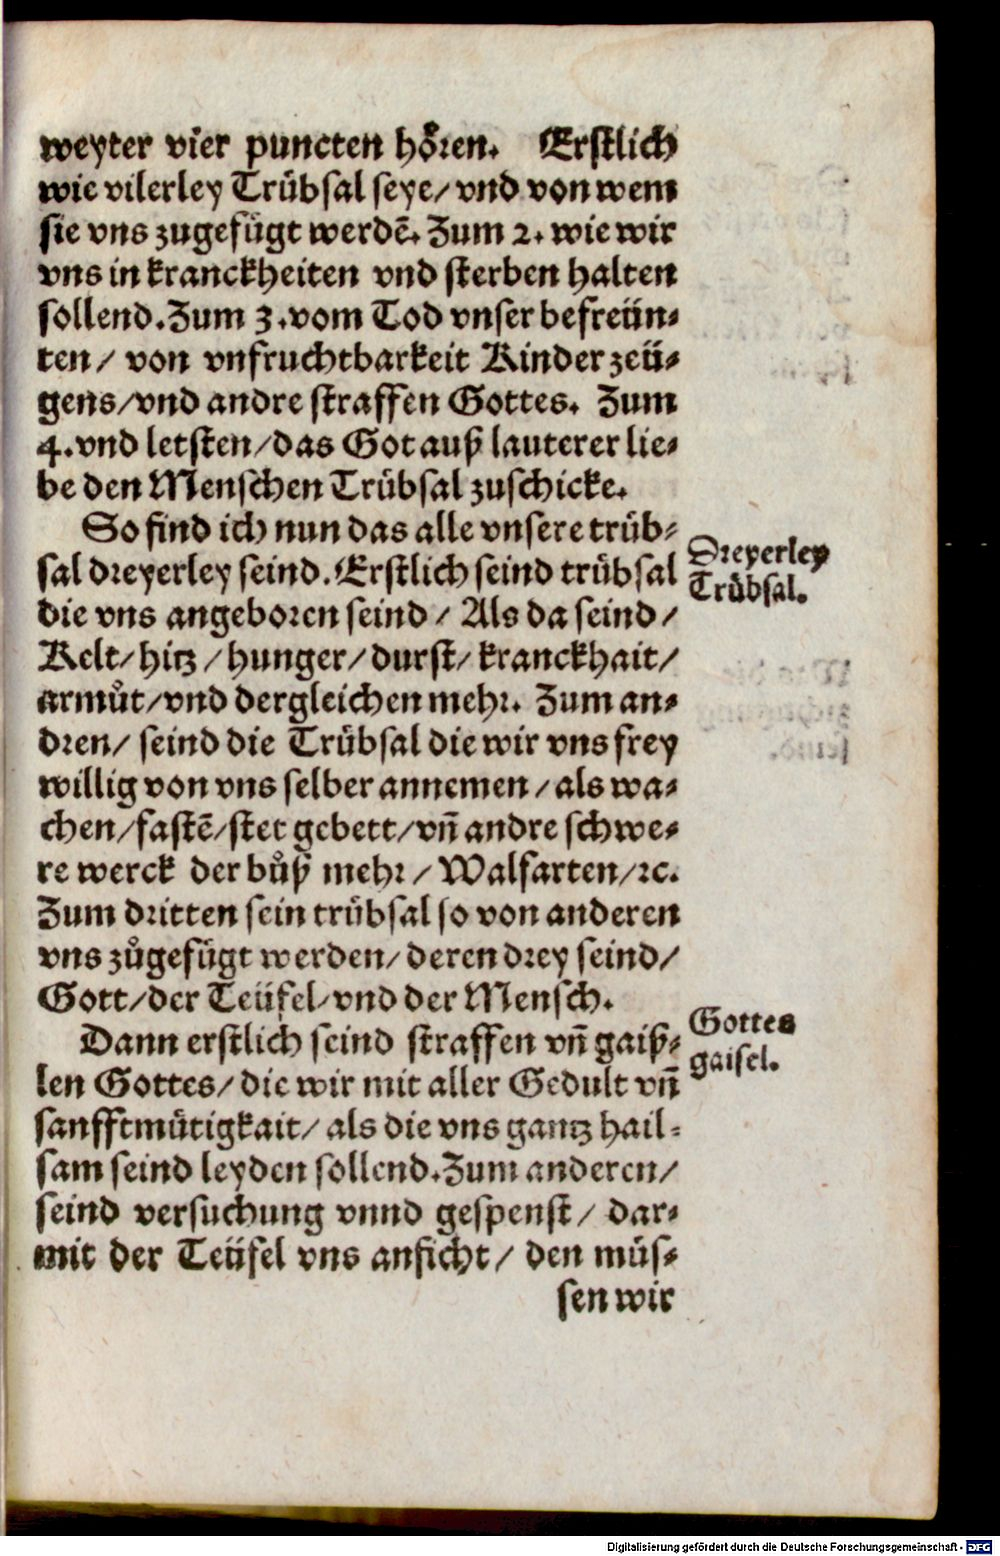 weyter vier puncten hoͤren. Erstlich
wie vilerley Truͤbsal seye/ vnd von wem
sie vns zugefuͤgt werdẽ. Zum 2. wie wir
vns in kranckheiten vnd sterben halten
sollend. Zum 3. vom Tod vnser befreuͤn-
ten/ von vnfruchtbarkeit Kinder zeuͤ-
gens/ vnd andre straffen Gottes. Zum
4. vnd letsten/ das Got auß lauterer lie-
be den Menschen Truͤbsal zuschicke.
So find ich nun das alle vnsere truͤb-
sal dreyerley seind. Erstlich seind truͤbsal
Dreyerley
Truͤbsal.
die vns angeboren seind/ Als da seind/
Kelt/ hitz/ hunger/ durst/ kranckhait/
armuͦt/ vnd dergleichen mehr. Zum an-
dren/ seind die Truͤbsal die wir vns frey
willig von vns selber annemen/ als wa-
chen/ fastẽ/ stet gebett/ vñ andre schwe-
re werck der buͦß mehr/ Walfarten/ ꝛc.
Zum dritten sein truͤbsal so von anderen
vns zuͦgefuͤgt werden/ deren drey seind/
Gott/ der Teuͤfel/ vnd der Mensch.
Dann erstlich seind straffen vñ gaiß-
Gottes
gaisel.
len Gottes/ die wir mit aller Gedult vñ
sanfftmuͤtigkait/ als die vns gantz hail-
sam seind leyden sollend. Zum anderen/
seind versuchung vnnd gespenst/ dar-
mit der Teuͤfel vns anficht/ den muͤs-
sen wir
Digitalisierung gefördert durch die Deutsche Forschungsgemeinschaft - DFG